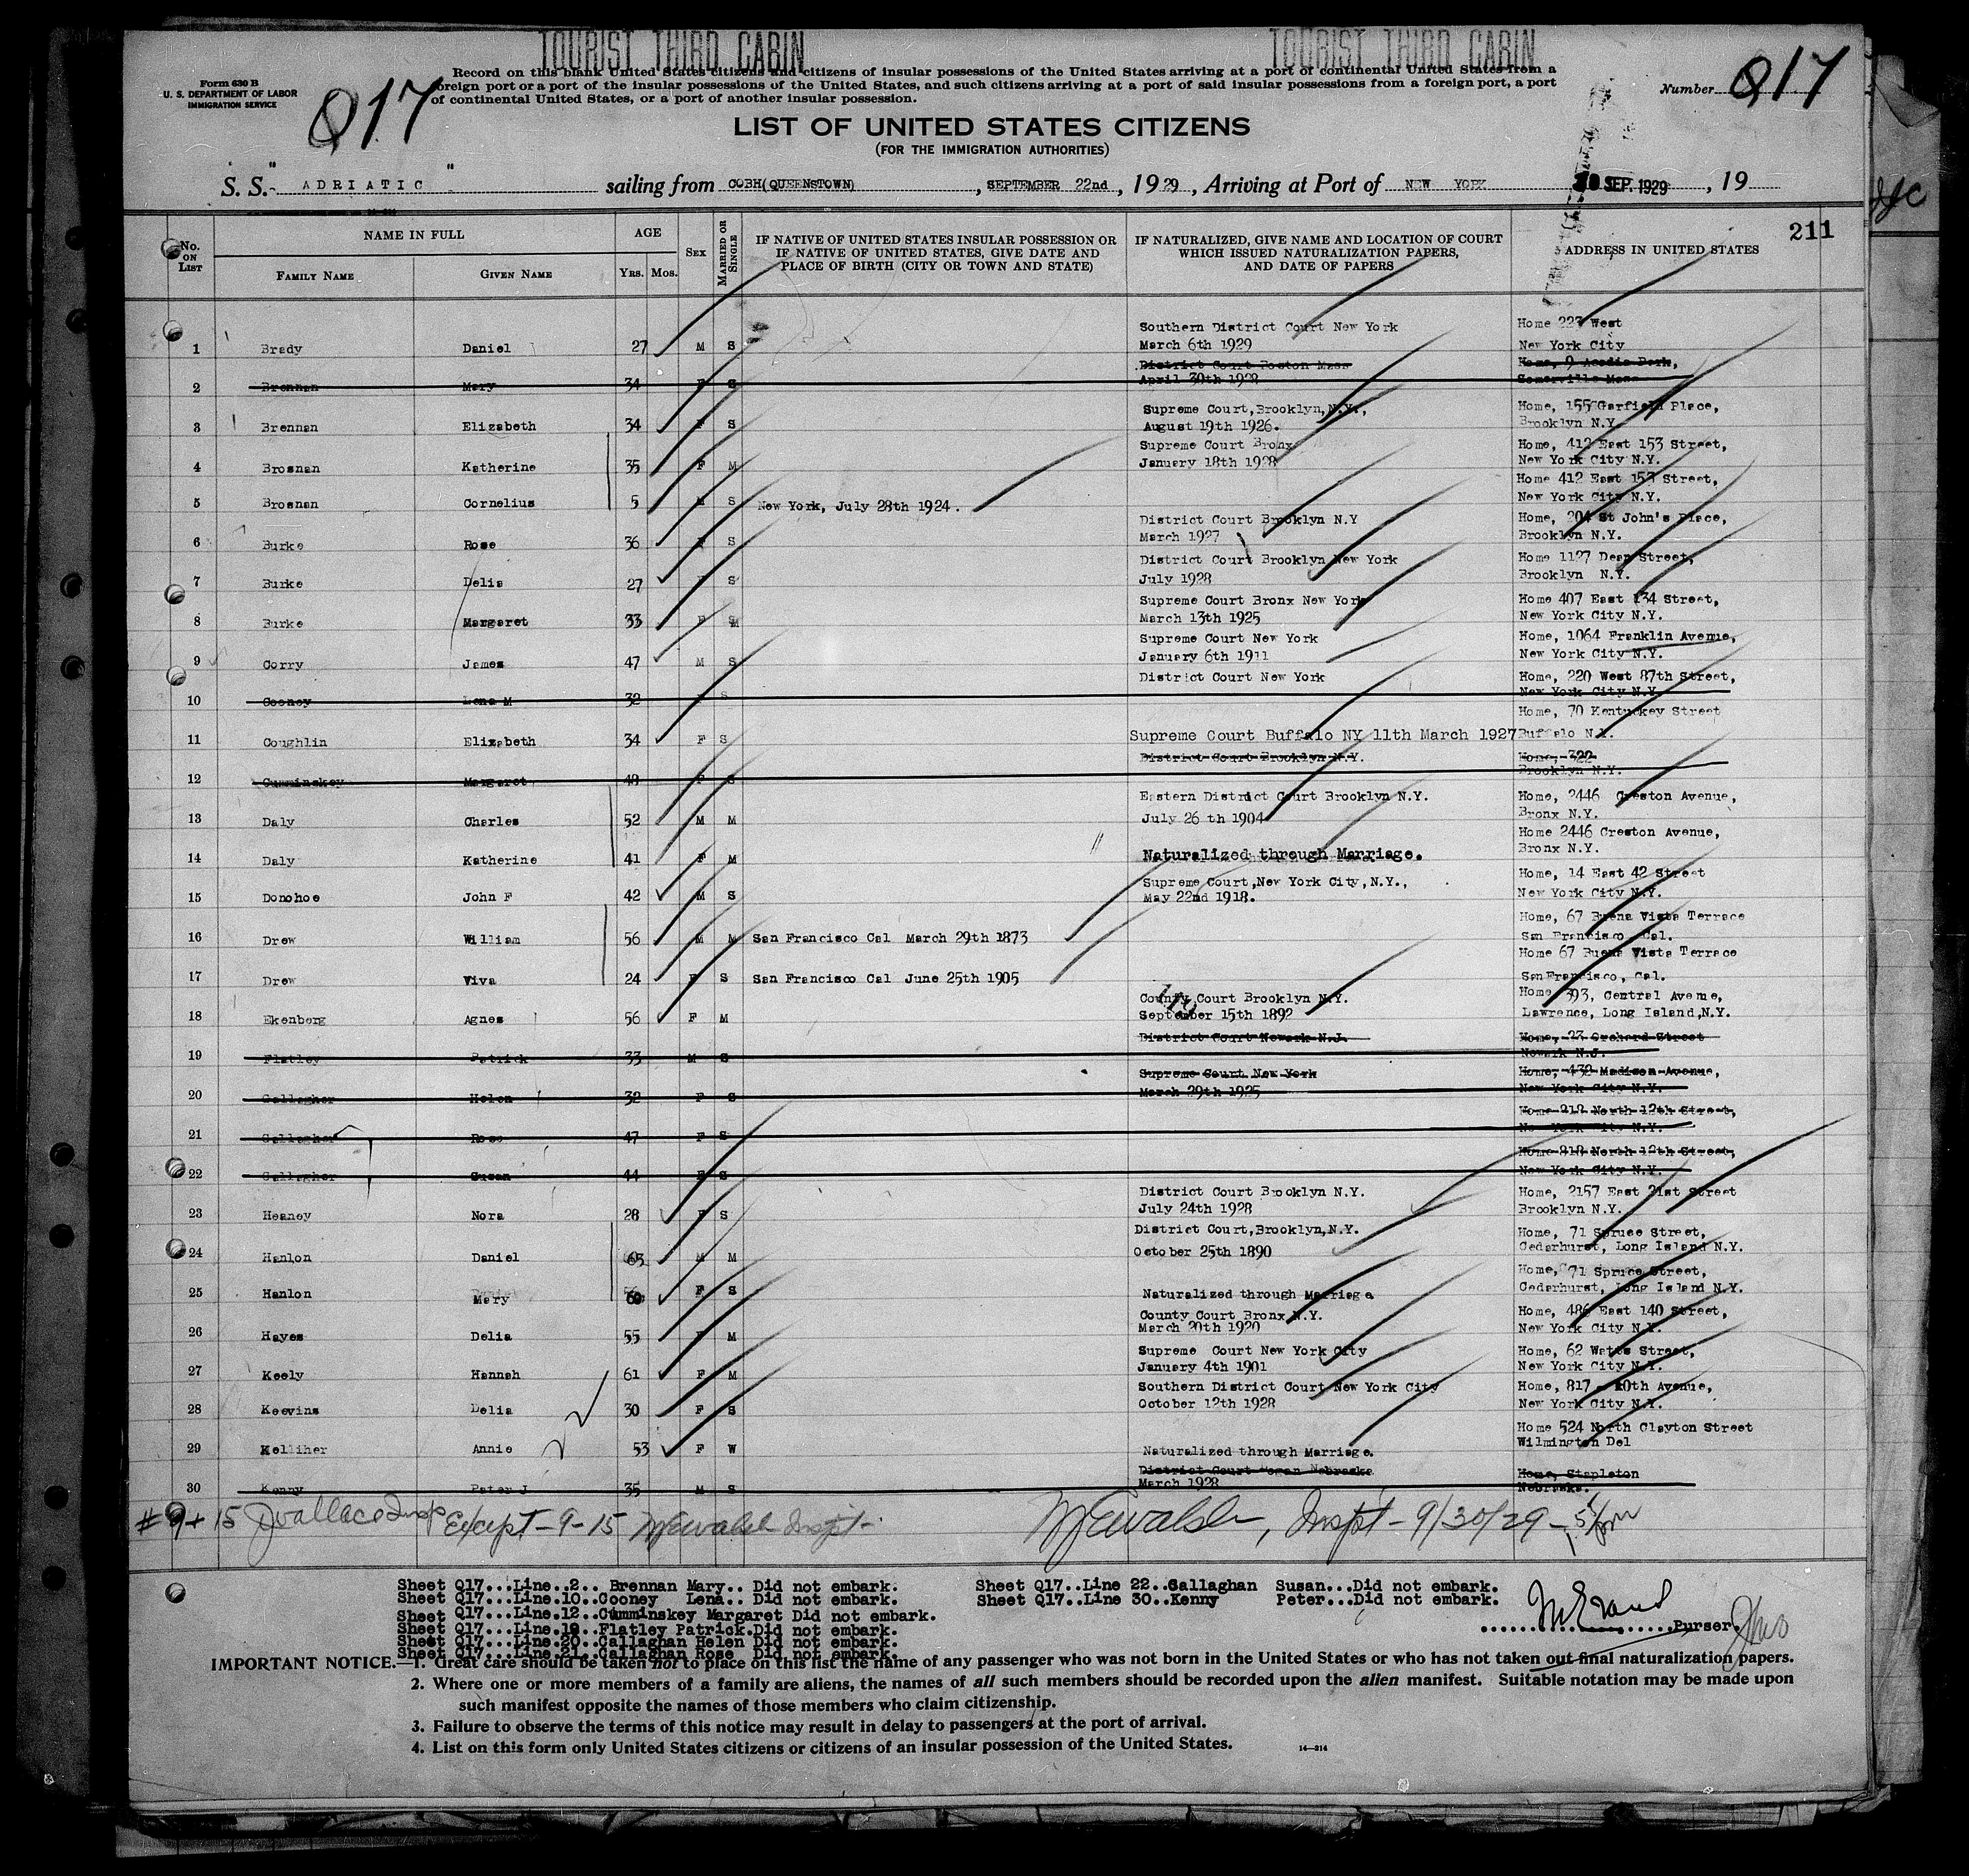 TOURIST THIRD CABIN
TOURIST THIRD CABIN
Form 630 B
U. S. DEPARTMENT OF LABOR
IMMIGRATION SERVICE
Q17
Record on this blank United States citizens and citizens of insular possessions of the United States arriving at a port of continental United States from a
foreign port or a port of the insular possessions of the United States, and such citizens arriving at a port of said insular possessions from a foreign port, a port
of continental United States, or a port of another insular possession.
Number Q17
LIST OF UNITED STATES CITIZENS
(FOR THE IMMIGRATION AUTHORITIES)
S. S. " ADRIATIC " sailing from COBH(QUEENSTOWN), SEPTEMBER 22nd, 1929, Arriving at Port of NEW YORK SEP. 1929, 19
211
No. ON LIST
NAME IN FULL
FAMILY NAME
GIVEN NAME
AGE
YRS. MOS.
SEX
MARRIED OR SINGLE
IF NATIVE OF UNITED STATES INSULAR POSSESSION OR
IF NATIVE OF UNITED STATES, GIVE DATE AND
PLACE OF BIRTH (CITY OR TOWN AND STATE)
IF NATURALIZED, GIVE NAME AND LOCATION OF COURT
WHICH ISSUED NATURALIZATION PAPERS,
AND DATE OF PAPERS
ADDRESS IN UNITED STATES
Southern District Court New York Home 223 West
1 Brady Daniel 27 M S March 6th 1929 New York City
District Court Boston Mass Home, 9 Acadia Park,
2 Brennan Mary 34 F S April 30th 1928 Somerville Mass
Supreme Court,Brooklyn,N.Y., Home, 155 Garfield Place,
3 Brennan Elizabeth 34 F S August 19th 1926. Brooklyn N.Y.
Supreme Court Bronx Home, 412 East 153 Street,
4 Brosnan Katherine 35 F M January 18th 1928 New York City N.Y.
Home 412 East 153 Street,
5 Brosnan Cornelius 5 M S New York, July 28th 1924. New York City N.Y.
District Court Brooklyn N.Y Home, 204 St John's Place,
6 Burke Rose 36 F S March 1927 Brooklyn N.Y.
District Court Brooklyn New York Home 1127 Dean Street,
7 Burke Delia 27 F S July 1928 Brooklyn N.Y.
Supreme Court Bronx New York Home 407 East 134 Street,
8 Burke Margaret 33 F M March 13th 1925 New York City N.Y.
Supreme Court New York Home, 1064 Franklin Avenue,
9 Corry James 47 M S January 6th 1911 New York City N.Y.
District Court New York Home, 220 West 87th Street,
10 Cooney Lena M 32 F S New York City N.Y.
Home, 70 Kentuckey Street
11 Coughlin Elizabeth 34 F S Supreme Court Buffalo NY 11th March 1927 Buffalo N.Y.
District Court Brooklyn N.Y. Home, 322
12 Cumminskey Margaret 48 F S Brooklyn N.Y.
Eastern District Court Brooklyn N.Y. Home, 2446 Creston Avenue,
13 Daly Charles 52 M M July 26 th 1904 Bronx N.Y.
Home 2446 Creston Avenue,
14 Daly Katherine 41 F M Naturalized through Marriage. Bronx N.Y.
Supreme Court,New York City,N.Y., Home, 14 East 42 Street
15 Donohoe John F 42 M S May 22nd 1918. New York City N.Y.
Home, 67 Buena Vista Terrace
16 Drew William 56 M M San Francisco Cal March 29th 1873 San Francisco Cal.
Home 67 Buena Vista Terrace
17 Drew Viva 24 F S San Francisco Cal June 25th 1905 San Francisco, Cal.
County Court Brooklyn N.Y. Home 393, Central Avenue,
18 Ekenberg Agnes 56 F M September 15th 1892 Lawrence, Long Island,N.Y.
District Court Newark N.J. Home, 23 Orchard Street
19 Flatley Patrick 33 M S Newark N.J.
Supreme Court New York Home, 432 Madison Avenue,
20 Gallagher Helen 32 F S March 29th 1925 New York City N.Y.
Home 818 North 12th Street,
21 Gallagher Rose 47 F S New York City N.Y.
Home 818 North 12th Street,
22 Gallagher Susan 44 F S New York City N.Y.
District Court Brooklyn N.Y. Home, 2157 East 21st Street
23 Heaney Nora 28 F S July 24th 1928 Brooklyn N.Y.
District Court,Brooklyn,N.Y. Home, 71 Spruce Street,
24 Hanlon Daniel 63 M M October 25th 1890 Cedarhurst, Long Island N.Y.
Home, 71 Spruce Street,
25 Hanlon Mary 60 F S Naturalized through Marriage. Cedarhurst, Long Island N.Y.
County Court Bronx N.Y. Home, 486 East 140 Street,
26 Hayes Delia 55 F M March 20th 1920 New York City N.Y.
Supreme Court New York City Home, 62 Watts Street,
27 Keely Hannah 61 F M January 4th 1901 New York City N.Y.
Southern District Court New York City Home, 817 - 10th Avenue,
28 Keevins Delia 30 F S October 12th 1928 New York City N.Y.
Home 524 North Clayton Street
29 Kelliher Annie 53 F W Naturalized through Marriage. Wilmington Del
District Court Nebraska Home, Stapleton
30 Kenny Peter J 35 M S March 1928 Nebraska.
#9+15 JWallace Insp Except - 9-15 MEWalsh Inspt - MEWalsh, Inspt - 9/30/29 -
Sheet Q17...Line..2.. Brennan Mary.. Did not embark.
Sheet Q17...Line.10..Cooney Lena.. Did not embark.
Sheet Q17...Line.12..Cumminskey Margaret Did not embark.
Sheet Q17...Line.19..Flatley Patrick.Did not embark.
Sheet Q17...Line.20..Callaghan Helen Did not embark.
Sheet Q17...Line.21..Callaghan Rose Did not embark.
Sheet Q17..Line 22..Callaghan Susan...Did not embark.
Sheet Q17..Line 30..Kenny Peter...Did not embark.
Purser
IMPORTANT NOTICE.—1. Great care should be taken not to place on this list the name of any passenger who was not born in the United States or who has not taken out final naturalization papers.
2. Where one or more members of a family are aliens, the names of all such members should be recorded upon the alien manifest. Suitable notation may be made upon
such manifest opposite the names of those members who claim citizenship.
3. Failure to observe the terms of this notice may result in delay to passengers at the port of arrival.
4. List on this form only United States citizens or citizens of an insular possession of the United States.
14—214